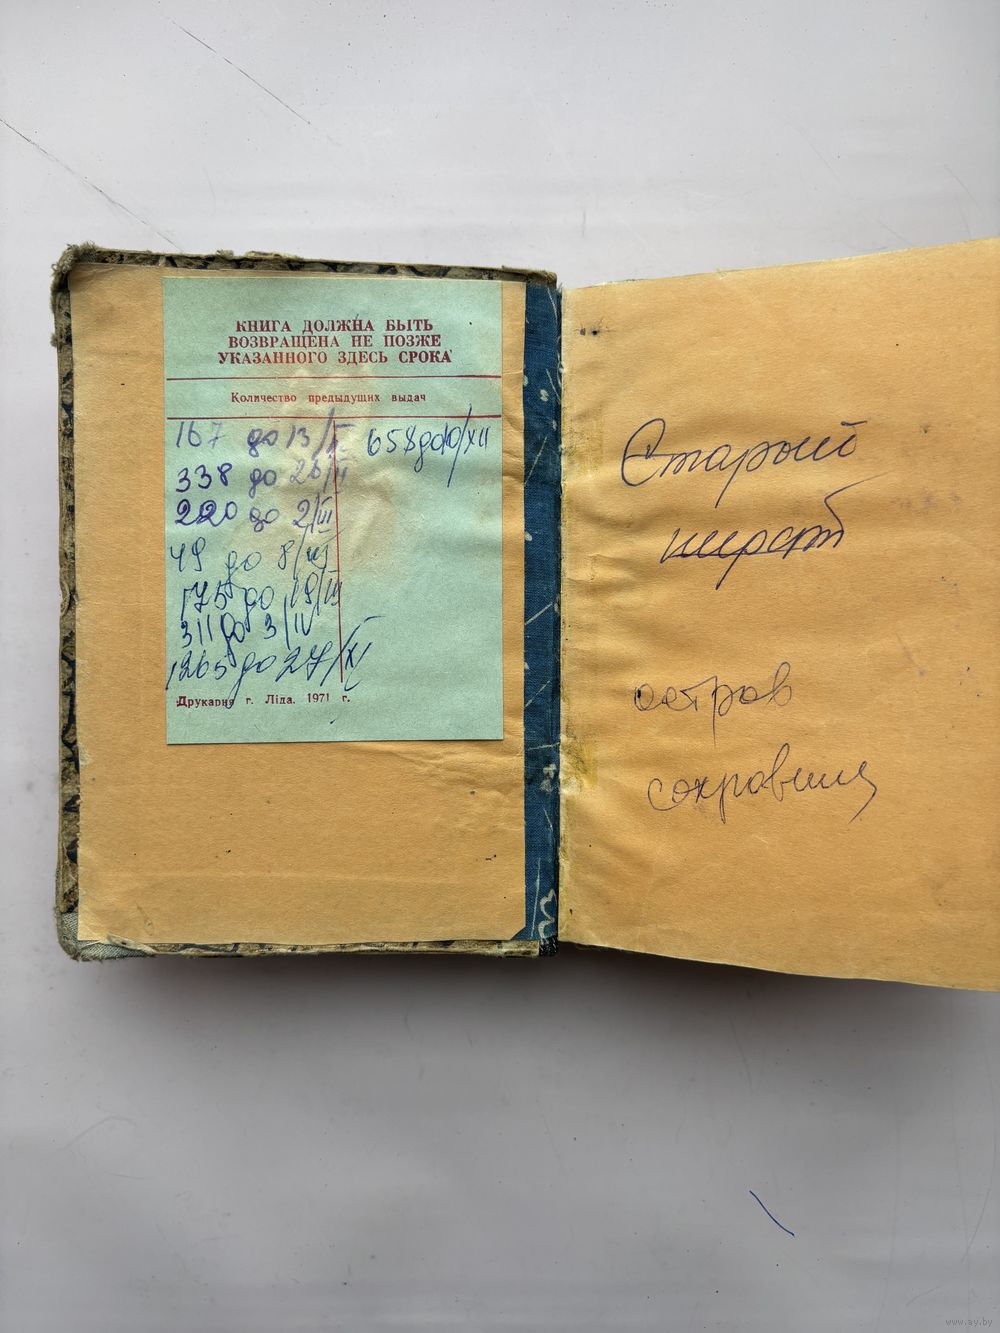 КНИГА ДОЛЖНА БЫТЬ
ВОЗВРАЩЕНА НЕ ПОЗЖЕ
УКАЗАННОГО ЗДЕСЬ СРОКА
Количество предыдущих выдач
167 до 13/I
338 до 26/II
220 до 2/III
49 до 8/III
175 до 19/III
311 до 3/IV
1265 до 27/XI
658 до 10/XII
Друкарня г. Ліда. 1971 г.
Старый
пират
остров
сокровищ
www.ay.by